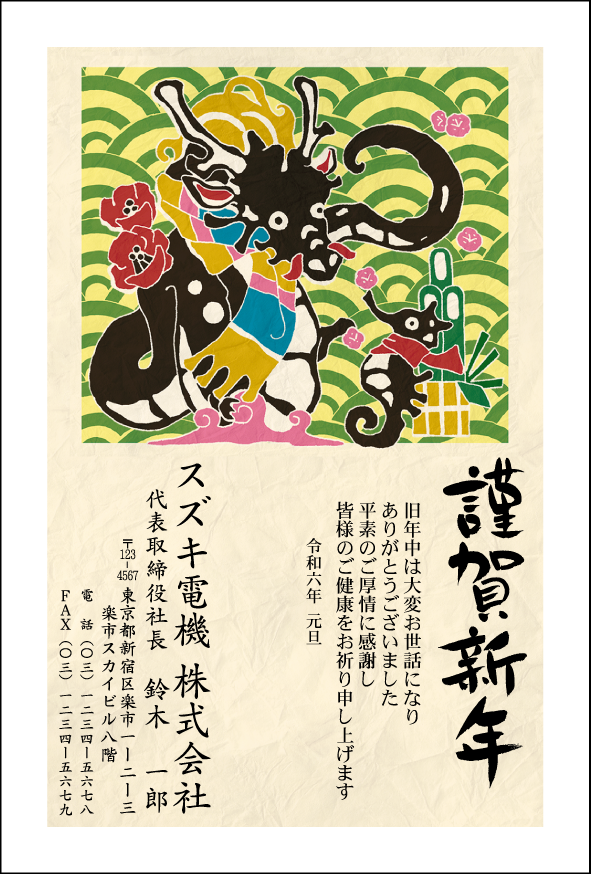 謹賀新年
旧年中は大変お世話になり
ありがとうございました
平素のご厚情に感謝し
皆様のご健康をお祈り申し上げます
令和六年 元旦
スズキ電機 株式会社
代表取締役社長 鈴木 一郎
〒123-4567 東京都新宿区楽市一ー二ー三
楽市スカイビル八階
電話(〇三)一二三四ー五六七八
FAX(〇三)一二三四ー五六七九